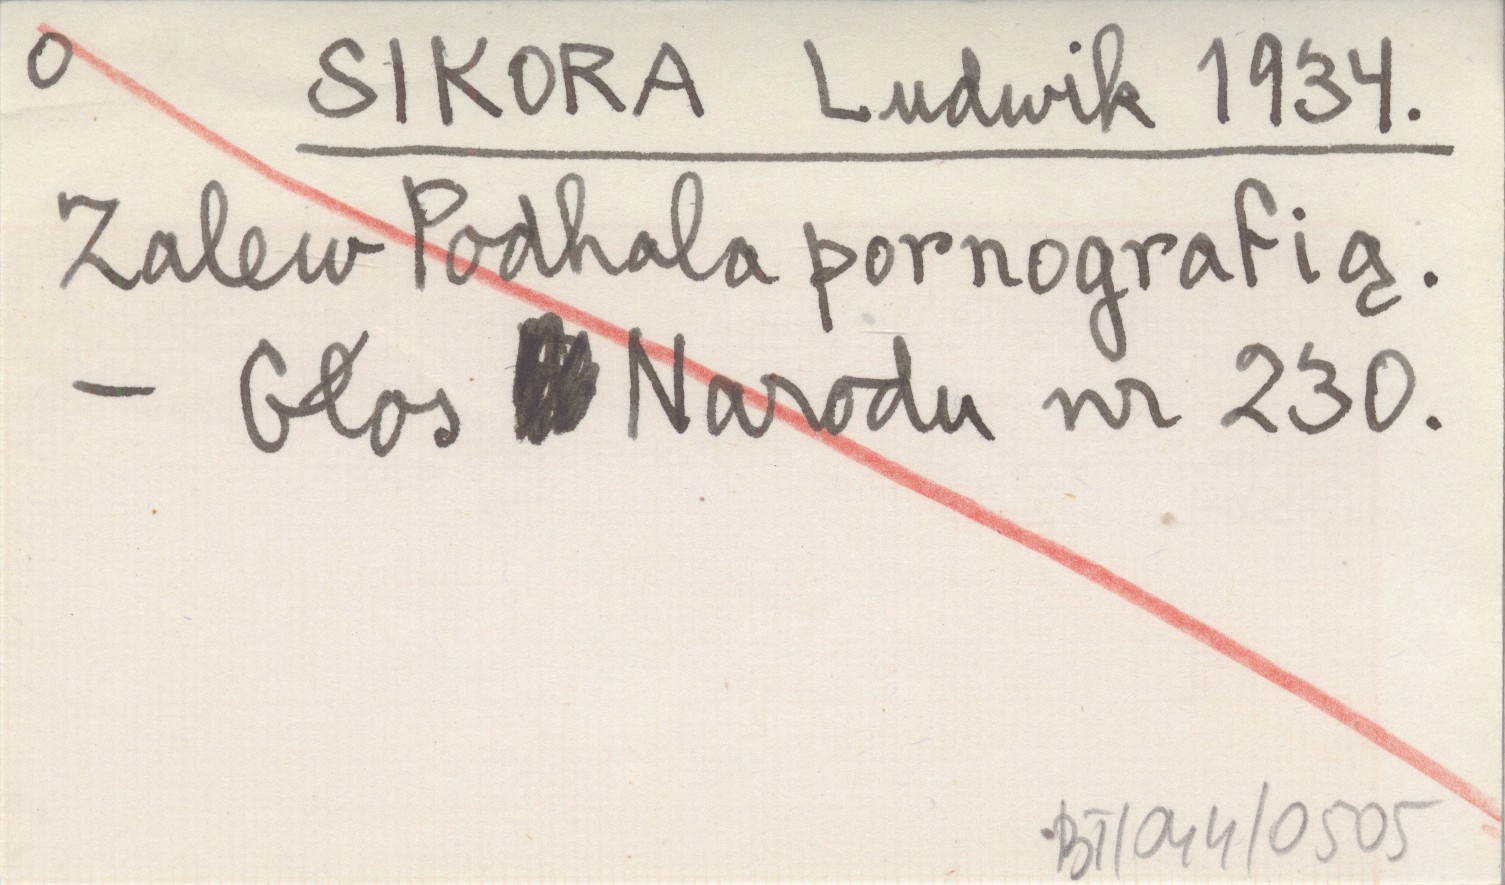 O SIKORA Ludwik 1934.
Zalew Podhala pornografią.
- Głos Narodu nr 230.
BT/044/0505